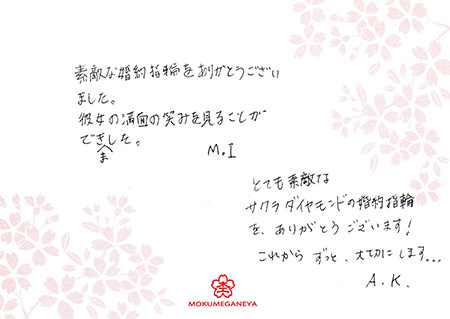 素敵な婚約指輪をありがとうござい
ました。
彼女の満面の笑みを見ることが
できました。
M.I
とても素敵な
サクラダイヤモンドの婚約指輪
を、ありがとうございます!
これから ずっと、大切にします...
A.K.
MOKUMEGANEYA